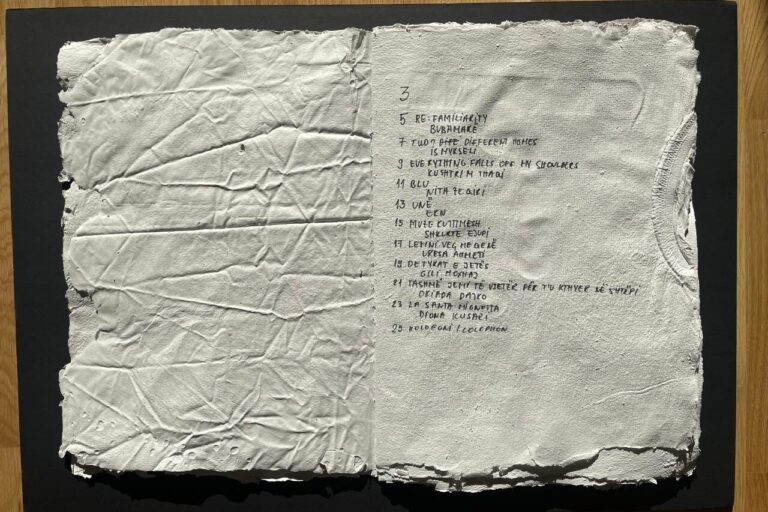 3
5 RE:FAMILIARITY
BUBAMARE
7 DIFFERENT HOMES
IS MYRSELI
9 EVERYTHING FALLS OFF MY SHOULDERS
KUSHTRIM THAQI
11 BLU
NITA ZEQIRI
13 UNË
ERN
15 MUZE KUJTIMESH
SHKURTE EJUPI
17 LEMNI VEÇ ME DERË
URESA AHMETI
19 DETYRAT E JETËS
GILI HOXHAJ
21 TASHMË JEMI TË VJETËR PËR T'U KTHYER NË SHTËPI
DRIADA DAJKO
23 LA SANTA MIGNOTTA
DIONA KUSARI
25 KOLOFONI / COLOPHON